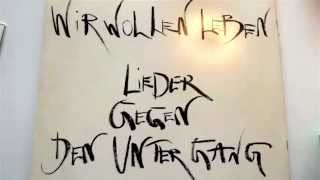 WIR WOLLEN LEBEN
LIEDER
GEGEN
DEN UNTERGANG